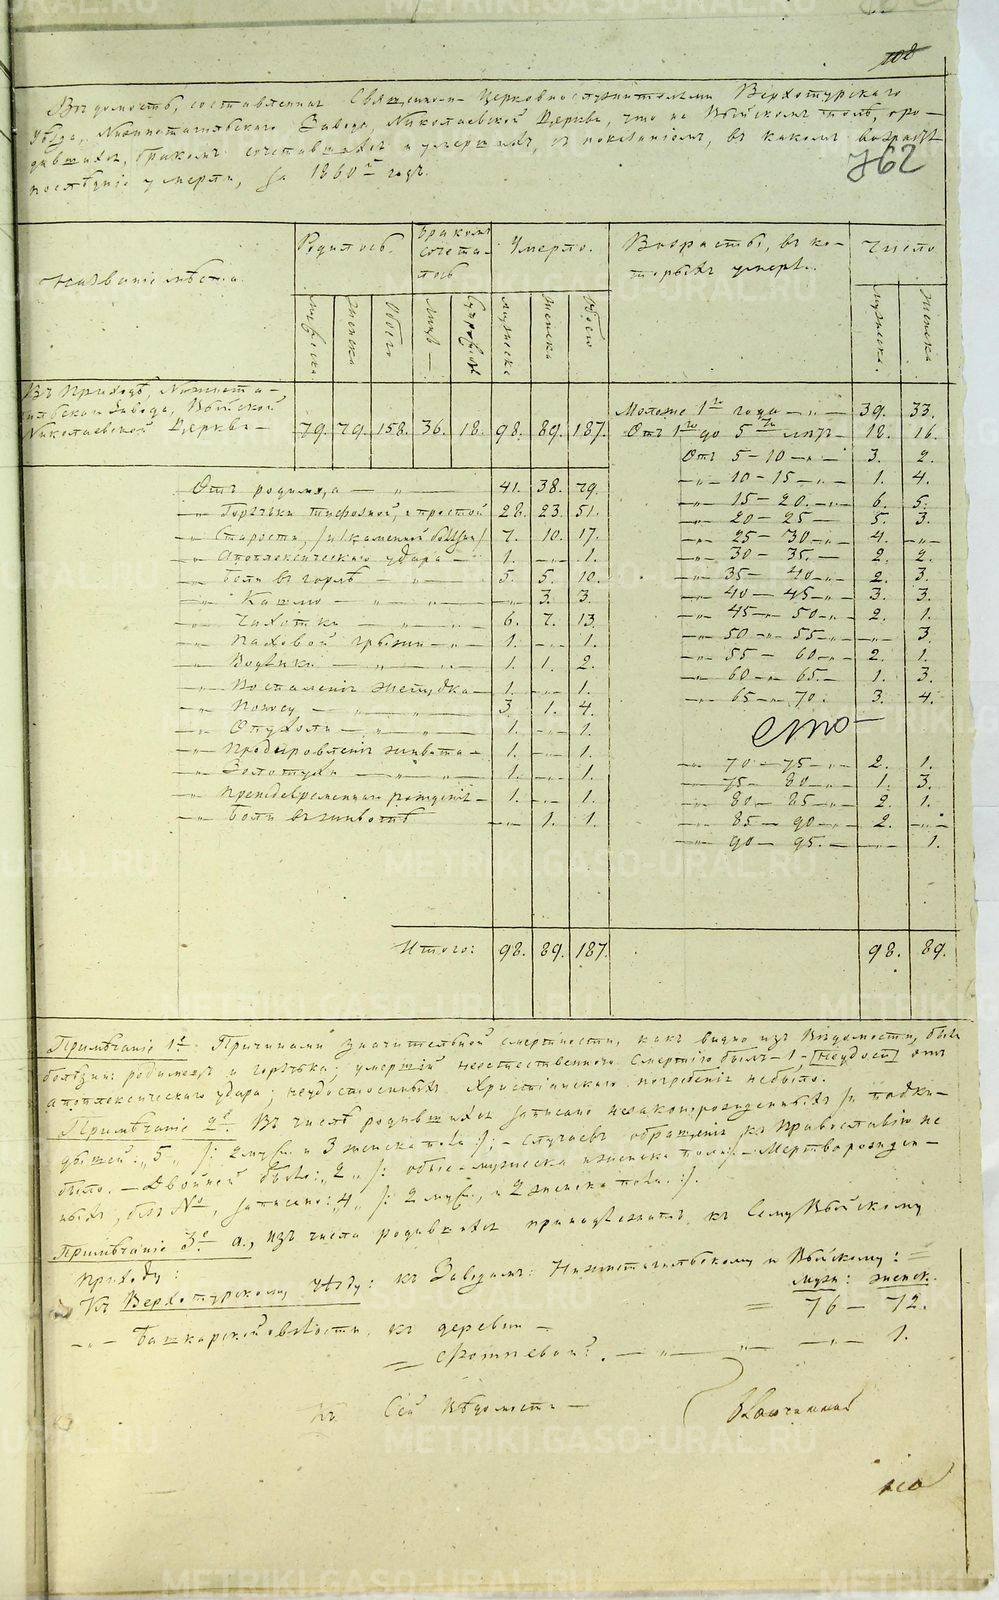 108
Вѣдомость, составленная Священно-церковнослужителями Верхотурскаго
Уѣзда, Нижнетагильскаго Завода, Николаевской Церкви, что на Выйскомъ полѣ, о ро-
дившихся, бракомъ сочетавшихся и умершихъ, съ показаніемъ, въ какомъ возрастѣ
762
послѣдніе умерли, за 1860й годъ.
Названіе мѣста.
Родилось.
Бракомъ сочета-
лось
Умерло.
Возрасты, въ ко-
торыхъ умерли.
Число
мужеска
женска
Обоего
Лицъ
Супружествъ
мужеска
женска
Обоего
мужеска.
женска
Въ Приходѣ, Нижнета-
гильскаго Завода, Выйской
Николаевской Церкви — 79. 79. 158. 36. 18. 98. 89. 187.
Моложе 1го года — 39. 33.
Отъ 1го до 5ти лѣтъ — 18. 16.
Отъ 5 — 10 — 3. 2.
— 10 — 15 — 1. 4.
— 15 — 20. — 6. 5.
— 20 — 25 — 5. 3.
— 25 — 30 — 4. —
— 30 — 35. — 2. 2.
— 35 — 40 — 2. 3.
— 40 — 45 — 3. 3.
— 45 — 50 — 2. 1.
— 50 — 55 — — 3.
— 55 — 60 — 2. 1.
— 60 — 65. — 1. 3.
— 65 — 70. 3. 4.
сто
— 70 — 75 — 2. 1.
— 75 — 80 — 1. 3.
— 80 — 85 — 2. 1.
— 85 — 90 — 2. —
— 90 — 95. — — 1.
Отъ родимца — 41. 38. 79.
— Горячки тифозной, и простой 28. 23. 51.
— Старости, 7. 10. 17.
— Апоплексическаго удара — 1. — 1.
— Боли въ горлѣ — 5. 5. 10.
— Кашлю — — 3. 3.
— Чахотки — 6. 7. 13.
— Паховой грыжи — 1. — 1.
— Водянки — 1. 1. 2.
— Воспаленія желудка — 1. — 1.
— Поносу — 3. 1. 4.
— Опухоли — 1. — 1.
— живота — 1. — 1.
— Золотухи — 1. — 1.
— Преждевременнаго рожденія — 1. — 1.
— Боли въ животѣ — 1. 1.
Итого: 98. 89. 187. 98. 89.
Примѣчаніе 1е. Причинами значительной смертности, какъ видно изъ Вѣдомости, были
болѣзни: родимецъ и горячка; умершій неестественною Смертію былъ — 1, отъ
апоплексическаго удара; неудостоенныхъ Христіанскаго погребенія небыло.
Примѣчаніе 2е. Въ числѣ родившихся записано незаконнорожденныхъ и подки-
дышей: „5„ /: 2 муж. и 3 женска пола :/; — Случаевъ обращенія къ Православію не
было. — Двойней было: „2„ /: обое — мужеска и женска пола :/ — Мертворожден-
ныхъ, безъ №, записано: „4„ /: 2 муж., и 2 женска пола. :/.
Примѣчаніе 3е. а., изъ числа родившихся принадлежатъ къ Сему Выйскому
приходу:
Къ Верхотурскому уѣзду: къ Заводамъ: Нижнетагильскому и Выйскому:
муж: женск.
76 — 72.
— Башкарской волости, къ деревни —
— — 1.
Къ Сей Вѣдомости —